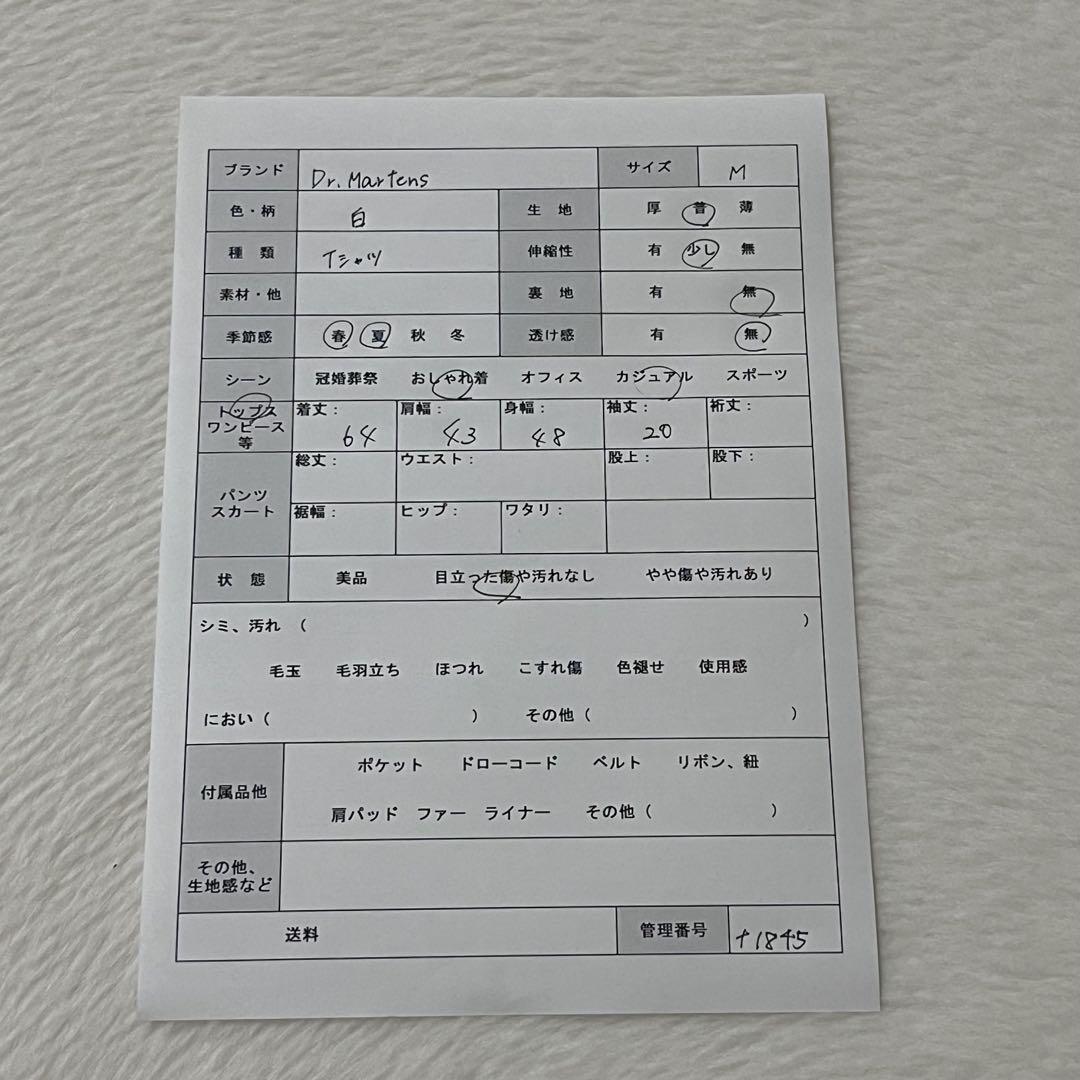 ブランド Dr.Martens サイズ M
色・柄 白 生 地 厚 普 薄
種 類 Tシャツ 伸縮性 有 少し 無
素材・他 裏 地 有 無
季節感 春 夏 秋 冬 透け感 有 無
シーン 冠婚葬祭 おしゃれ着 オフィス カジュアル スポーツ
トップス
ワンピース
等
着丈: 64 肩幅: 43 身幅: 48 袖丈: 20 裄丈:
パンツ
スカート
総丈: ウエスト: 股上: 股下:
裾幅: ヒップ: ワタリ:
状 態 美品 目立った傷や汚れなし やや傷や汚れあり
シミ、汚れ ( )
毛玉 毛羽立ち ほつれ こすれ傷 色褪せ 使用感
におい( ) その他( )
付属品他 ポケット ドローコード ベルト リボン、紐
肩パッド ファー ライナー その他( )
その他、
生地感など
送料 管理番号 +1845